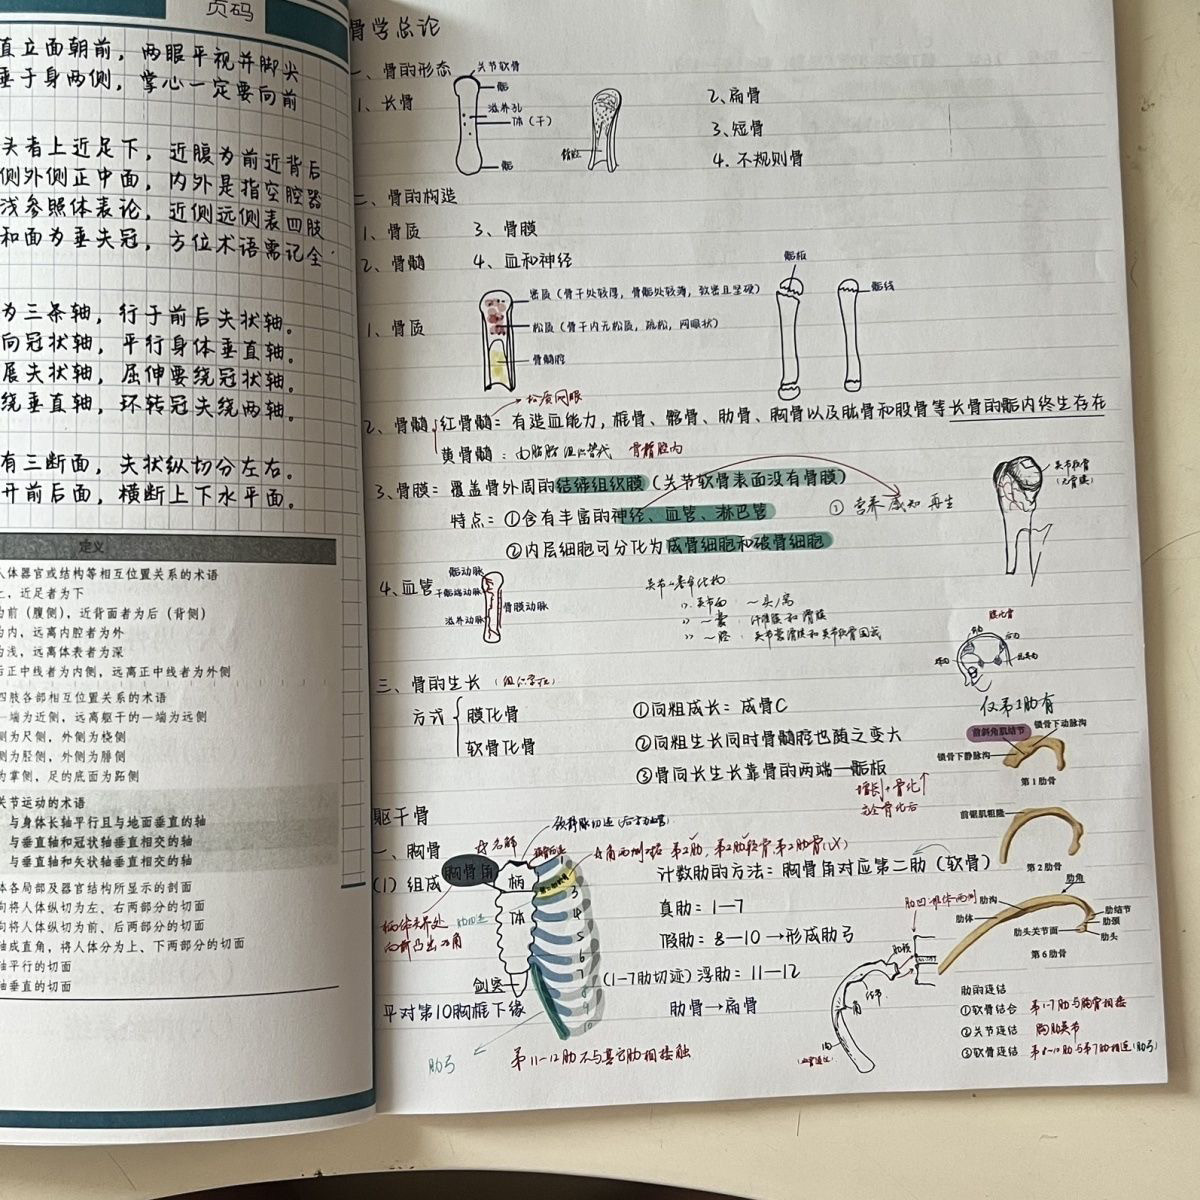 贞码
直立面朝前，两眼平视并脚尖
垂于身两侧，掌心一定要向前
头者上近足下，近腹为前近背后
侧外侧正中面，内外是指空腔器
浅参照体表论，近侧远侧表四肢
和面为垂夹冠，方位术语需记全
为三条轴，行于前后夹状轴。
向冠状轴，平行身体垂直轴。
展夹状轴，屈伸要绕冠状轴。
绕垂直轴，环转冠夹绕两轴。
有三断面，夹状纵切分左右。
开前后面，横断上下水平面。
定义
人体器官或结构等相互位置关系的术语
上，近足者为下
为前（腹侧），近背面者为后（背侧）
为内，远离内腔者为外
为浅，远离体表者为深
正中线者为内侧，远离正中线者为外侧
四肢各部相互位置关系的术语
一端为近侧，远离躯干的一端为远侧
侧为尺侧，外侧为桡侧
侧为胫侧，外侧为腓侧
为掌侧，足的底面为跖侧
关节运动的术语
与身体长轴平行且与地面垂直的轴
与垂直轴和冠状轴垂直相交的轴
与垂直轴和矢状轴垂直相交的轴
体各局部及器官结构所显示的剖面
向将人体纵切为左、右两部分的切面
向将人体纵切为前、后两部分的切面
轴成直角，将人体分为上、下两部分的切面
轴平行的切面
轴垂直的切面
骨学总论
一、骨的形态
1、长骨
关节软骨
骺
滋养孔
体（干）
骺
髓腔
2、扁骨
3、短骨
4、不规则骨
二、骨的构造
1、骨质 3、骨膜
2、骨髓 4、血和神经
1、骨质
密质（骨干处较厚，骨骺处较薄，致密且坚硬）
松质（骨干内无松质，疏松，网眼状）
骨髓腔
骺板
骺线
松质网眼
2、骨髓 红骨髓：有造血能力，椎骨、髂骨、肋骨、胸骨以及肱骨和股骨等长骨的骺内终生存在
黄骨髓：由脂肪组织替代 骨髓腔内
3、骨膜：覆盖骨外周的结缔组织膜（关节软骨表面没有骨膜）
特点：①含有丰富的神经、血管、淋巴管
① 营养 感知 再生
②内层细胞可分化为成骨细胞和破骨细胞
关节软骨
（无骨膜）
4、血管
骺动脉
干骺端动脉
滋养动脉
骨膜动脉
关节面：～头/窝
～囊：纤维膜和滑膜
～腔：
膜化骨
三、骨的生长（组织学）
方式
膜化骨
软骨化骨
①向粗成长：成骨C
②向粗生长同时骨髓腔也随之变大
③骨向长生长靠骨的两端—骺板
增长+骨化↑
完全骨化后
仅第1肋有
前斜角肌结节
锁骨下动脉沟
锁骨下静脉沟
第1肋骨
前锯肌粗隆
第2肋骨
躯干骨
一、胸骨
(1) 组成
胸骨角
柄
体
剑突
颈静脉切迹
名解
柄体交界处
向前凸出为角
肋切迹
锁骨切迹
3
4
5
6
7
8
9
10
平对第10胸椎下缘
肋弓
第11-12肋不与其它肋相接触
计数肋的方法：胸骨角对应第二肋（软骨）
真肋：1—7
假肋：8—10→形成肋弓
(1-7肋切迹) 浮肋：11—12
肋骨→扁骨
肋凹 椎体两侧
肋沟
肋体
肋角
肋结节
肋颈
肋头
肋头关节面
第6肋骨
角
肋的连结
①软骨结合 第1-7肋与胸骨相接
②关节连结 胸肋关节
③软骨连结 第8-10肋与第7肋相连(肋弓)